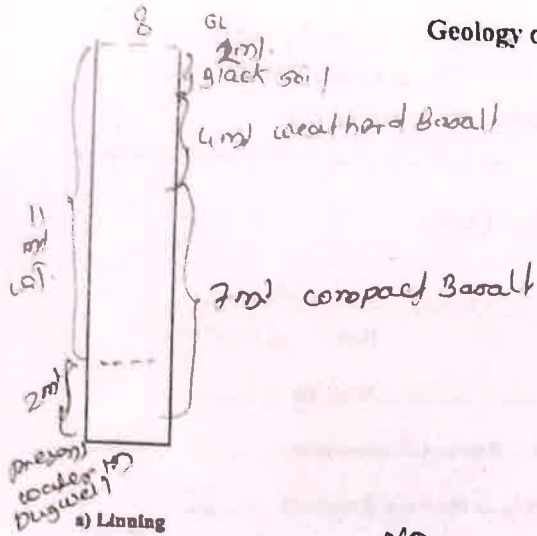 Geology o
8
GL
2mt.
Black soil
4mt weatherd Basalt
11 mt
7mt compact Basalt
2mt
present water in Dugwell
a) Linning